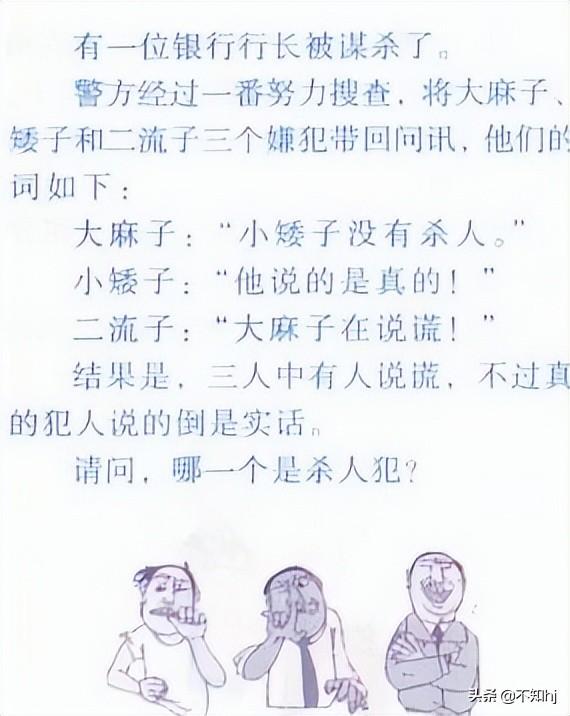 有一位银行行长被谋杀了。
警方经过一番努力搜查，将大麻子、
矮子和二流子三个嫌犯带回问讯，他们的
词如下：
大麻子：“小矮子没有杀人。”
小矮子：“他说的是真的！”
二流子：“大麻子在说谎！”
结果是，三人中有人说谎，不过真
的犯人说的倒是实话。
请问，哪一个是杀人犯？
头条 @不知hj